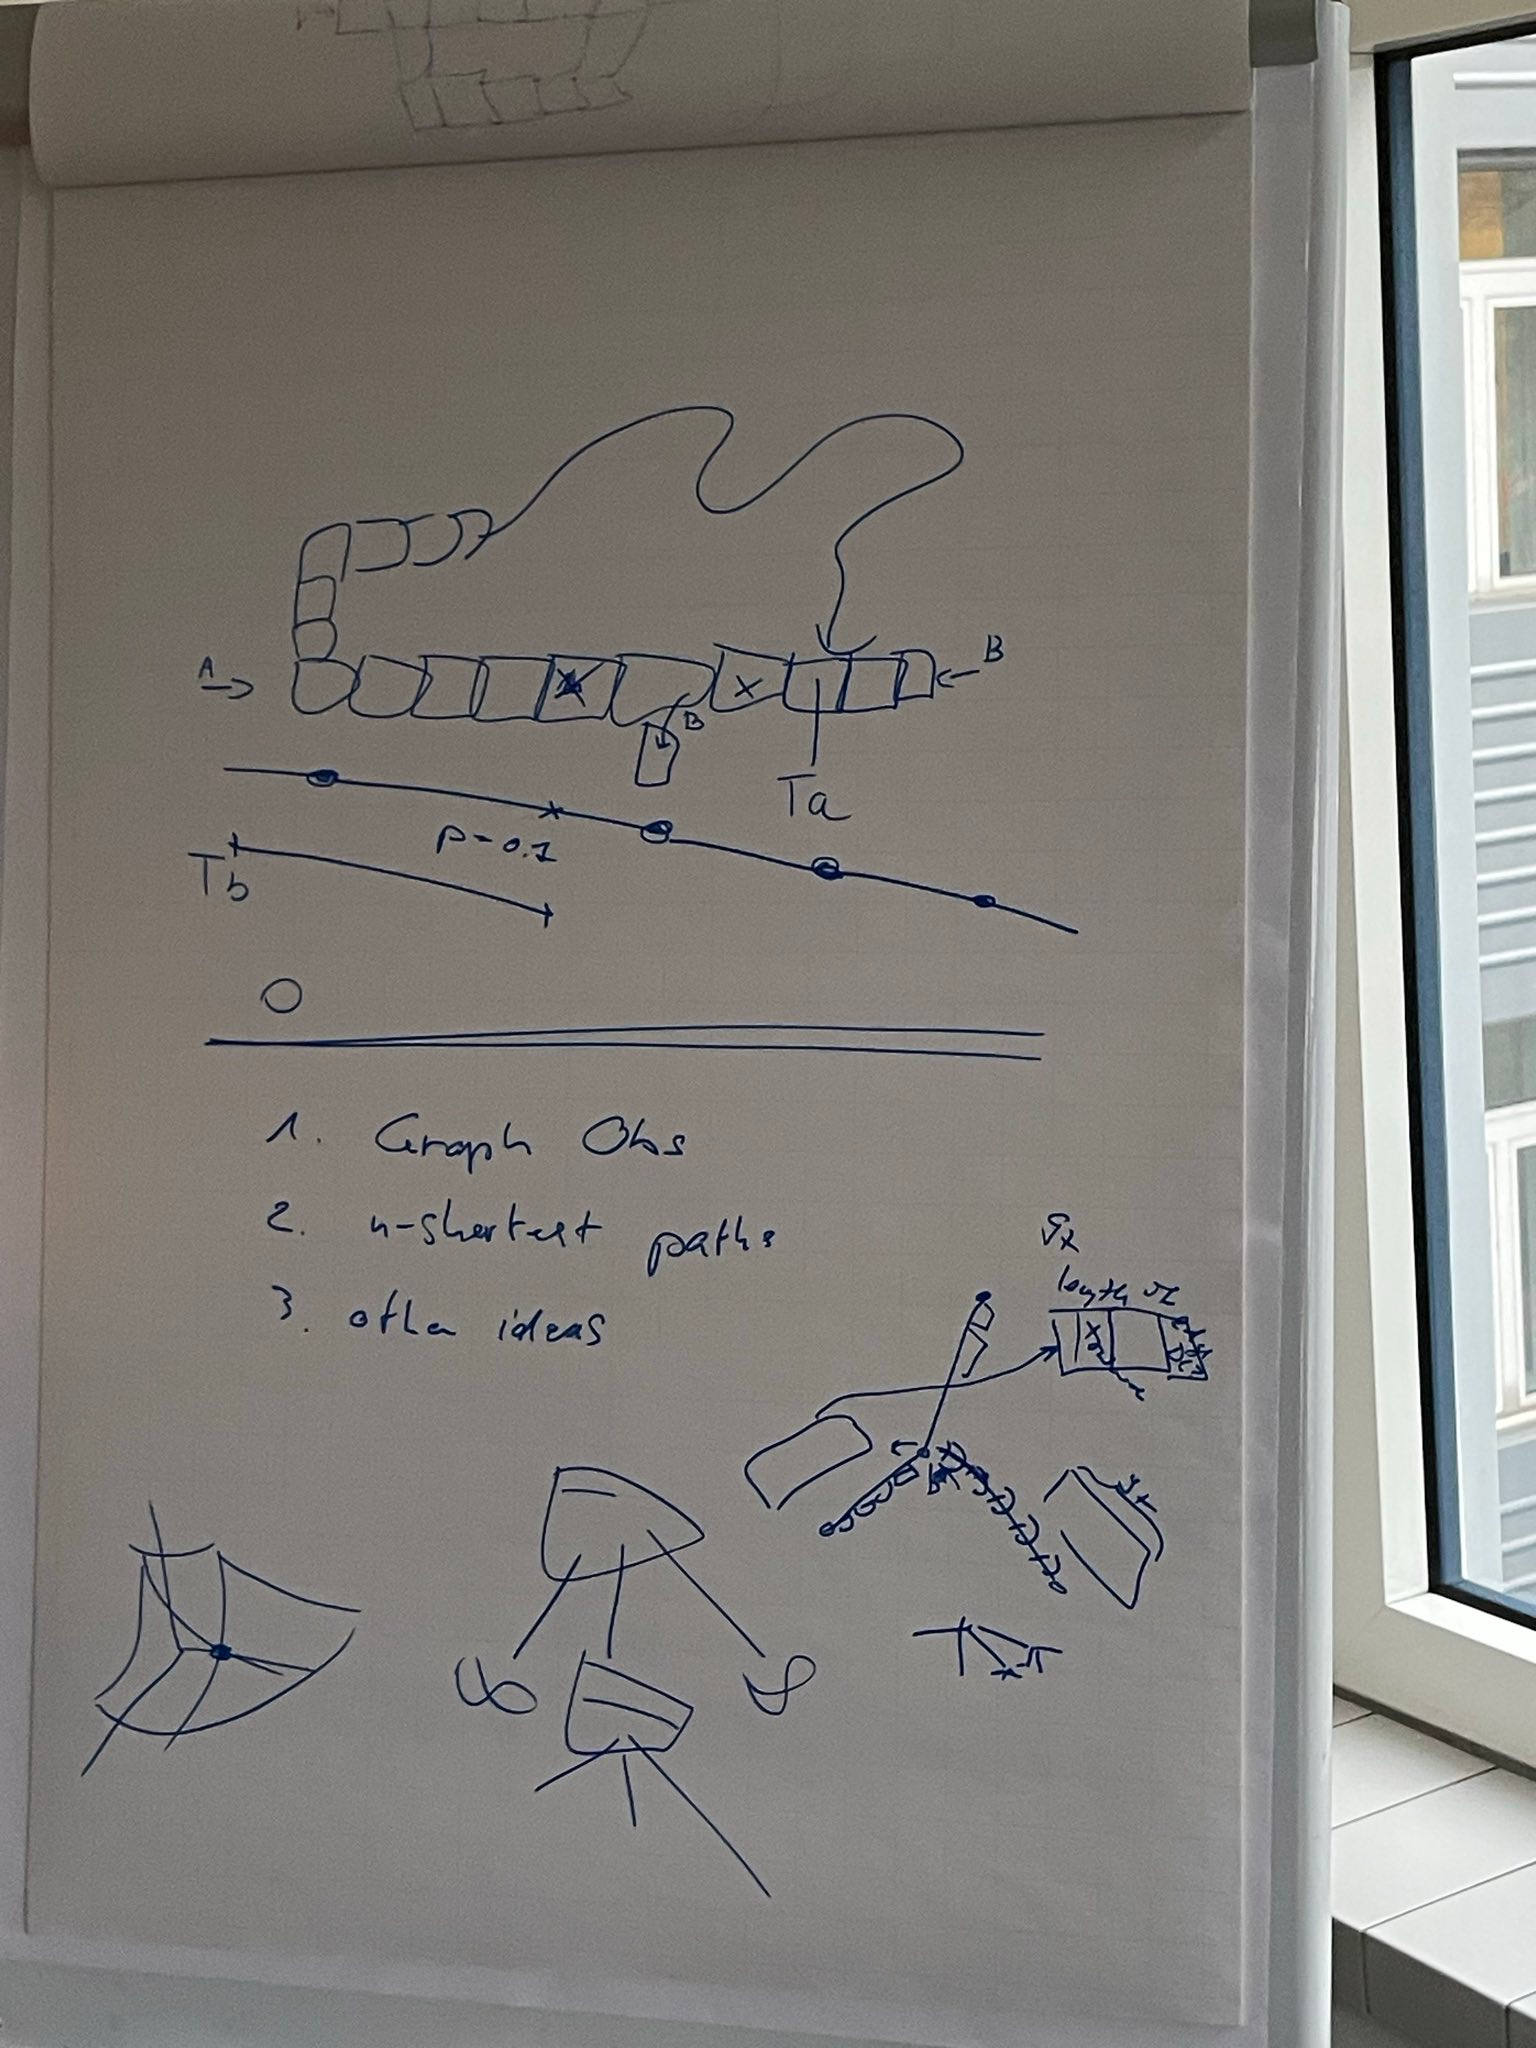 A
B
x
B
Ta
p=0.1
Tb
O
1. Graph Obs
2. n-shortest paths
3. other ideas
length
x